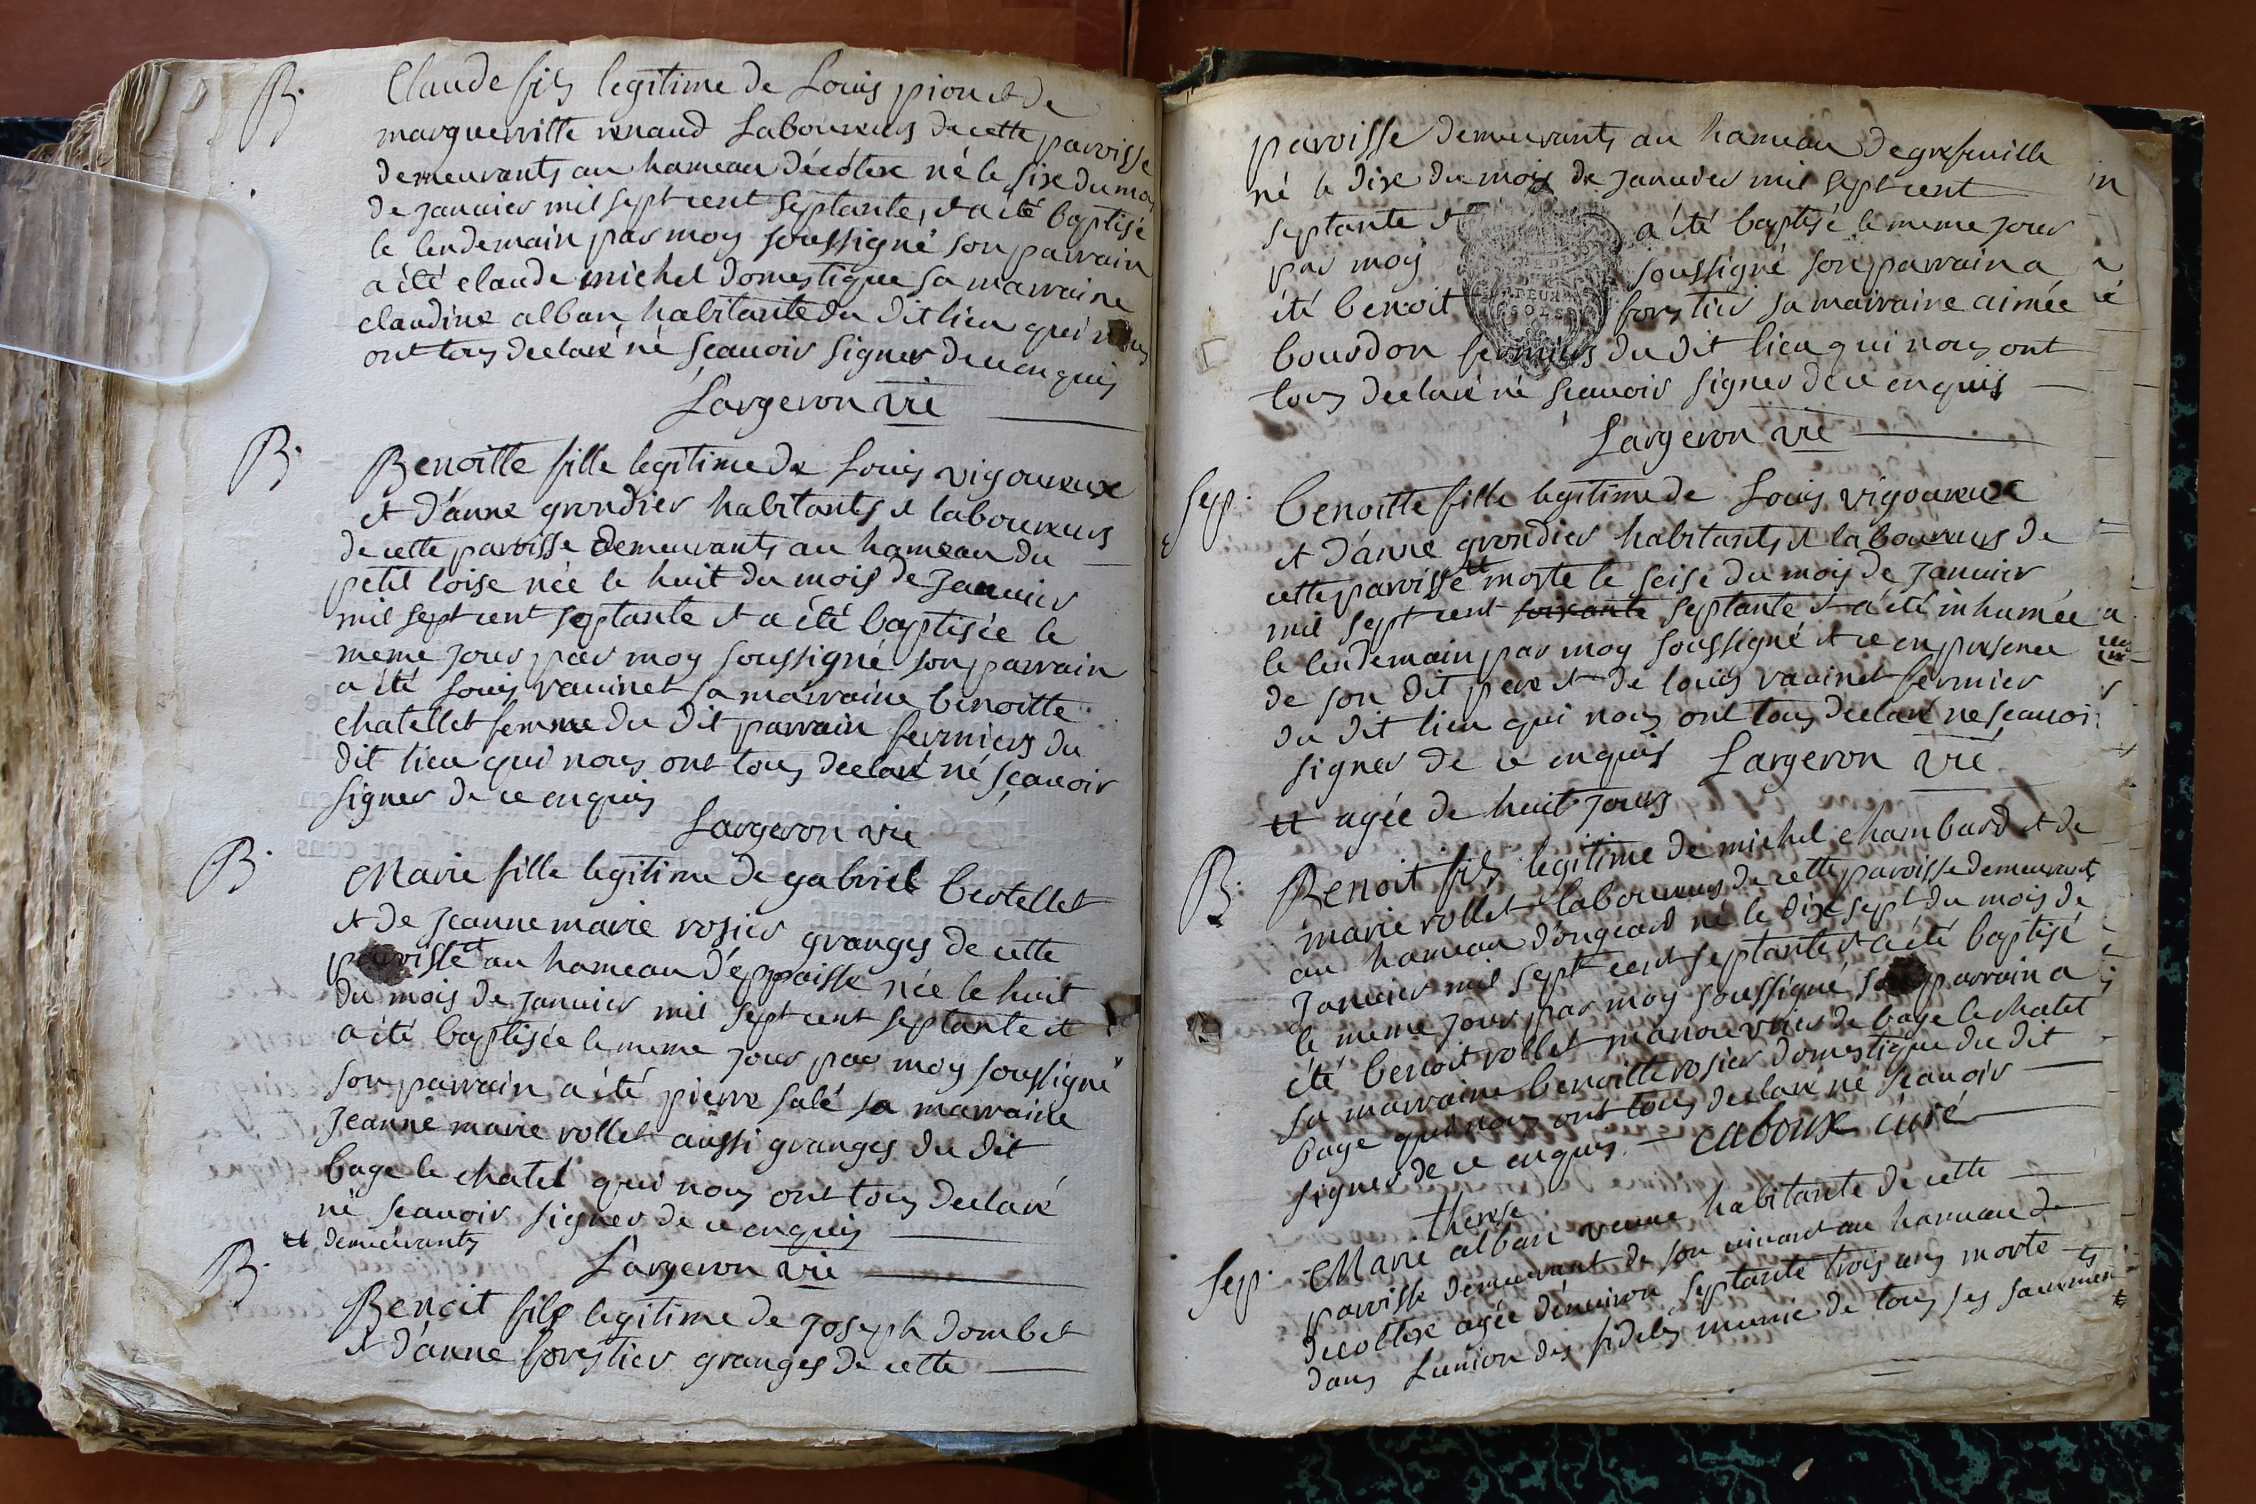 B.
Claude fils legitime de Louis pion et de
marguerritte renaud Laboureurs de cette parroisse
demeurants au hameau décôtex né le six du moi
de janvier mil sept cent septante, et a été baptisé
le lendemain par moy soussigné son parrain
a été claude michel domestique sa marraine
claudine alban habitante du dit lieu qui nous
ont tous declaré né sçauoir signer de ce enquis
Largeron vic
B.
Benoitte fille legitime de Louis vigoureux
et d'anne grondier habitants et laboureurs
de cette paroisse demeurants au hameau du
petit loise née le huit du mois de Januier
mil sept cent septante et a été baptisée le
meme jour par moy soussigné son parrain
a été Louis rauinet sa marraine benoitte
chatellet femme du dit parrain fermiers du
dit lieu qui nous ont tous declaré né sçauoir
signer de ce enquis
Largeron vic
B.
Marie fille legitime de gabriel bertellet
et de jeanne marie rosier granges de cette
parroisse tt au hameau d'éppaisse née le huit
du mois de januier mil sept cent septante et
a été baptisée le meme jour par moy soussigné
son parrain a été pierre salé sa marraine
jeanne marie rollet aussi granges du dit
bage le chatel qui nous ont tous declaré
né sçauoir signer de ce enquis
tt demeurants
Largeron vic
B.
Benoit fils legitime de joseph dombet
et d'anne forestier granges de cette
parroisse demeurants au hameau de grefeuille
né le dix du mois de januier mil sept cent
septante et a été baptisé le meme jour
par moy soussigné son parrain a
été benoit forestier sa marraine aimée
bourdon fermiers du dit lieu qui nous ont
tous declaré né sçauoir signer de ce enquis
DEUX
SOLS
Largeron vic
Sep.
benoitte fille legitime de Louis vigoureux
et d'anne grondier habitants et laboureurs de
cette paroisse tt morte le seise du mois de januier
mil sept cent soixante septante et a été inhumée
le lendemain par moy soussigné et ce en presence
de son dit pere et de louis rauinet fermier
du dit lieu qui nous ont tous declaré ne sçauoir
signer de ce enquis Largeron vic
tt agée de huit jours
B.
Benoit fils legitime de michel chambard et de
marie rollet laboureurs de cette paroisse demeurants
au hameau d'ongeard né le dix sept du mois de
januier mil sept cent septante et a été baptisé
le meme jour par moy soussigné son parrain a
été benoit rollet manouvrier de bage le chatel
sa marraine benoitte rosier domestique du dit
bage qui nous ont tous declaré né sçauoir
signer de ce enquis caboux curé
therese
Sep.
Marie alban veuue habitante de cette
parroisse demeurant de son viuant au hameau de
decottex agée d'enuiron septante trois ans morte
dans Lunion des fideles munie de tous ses sacremen
ts